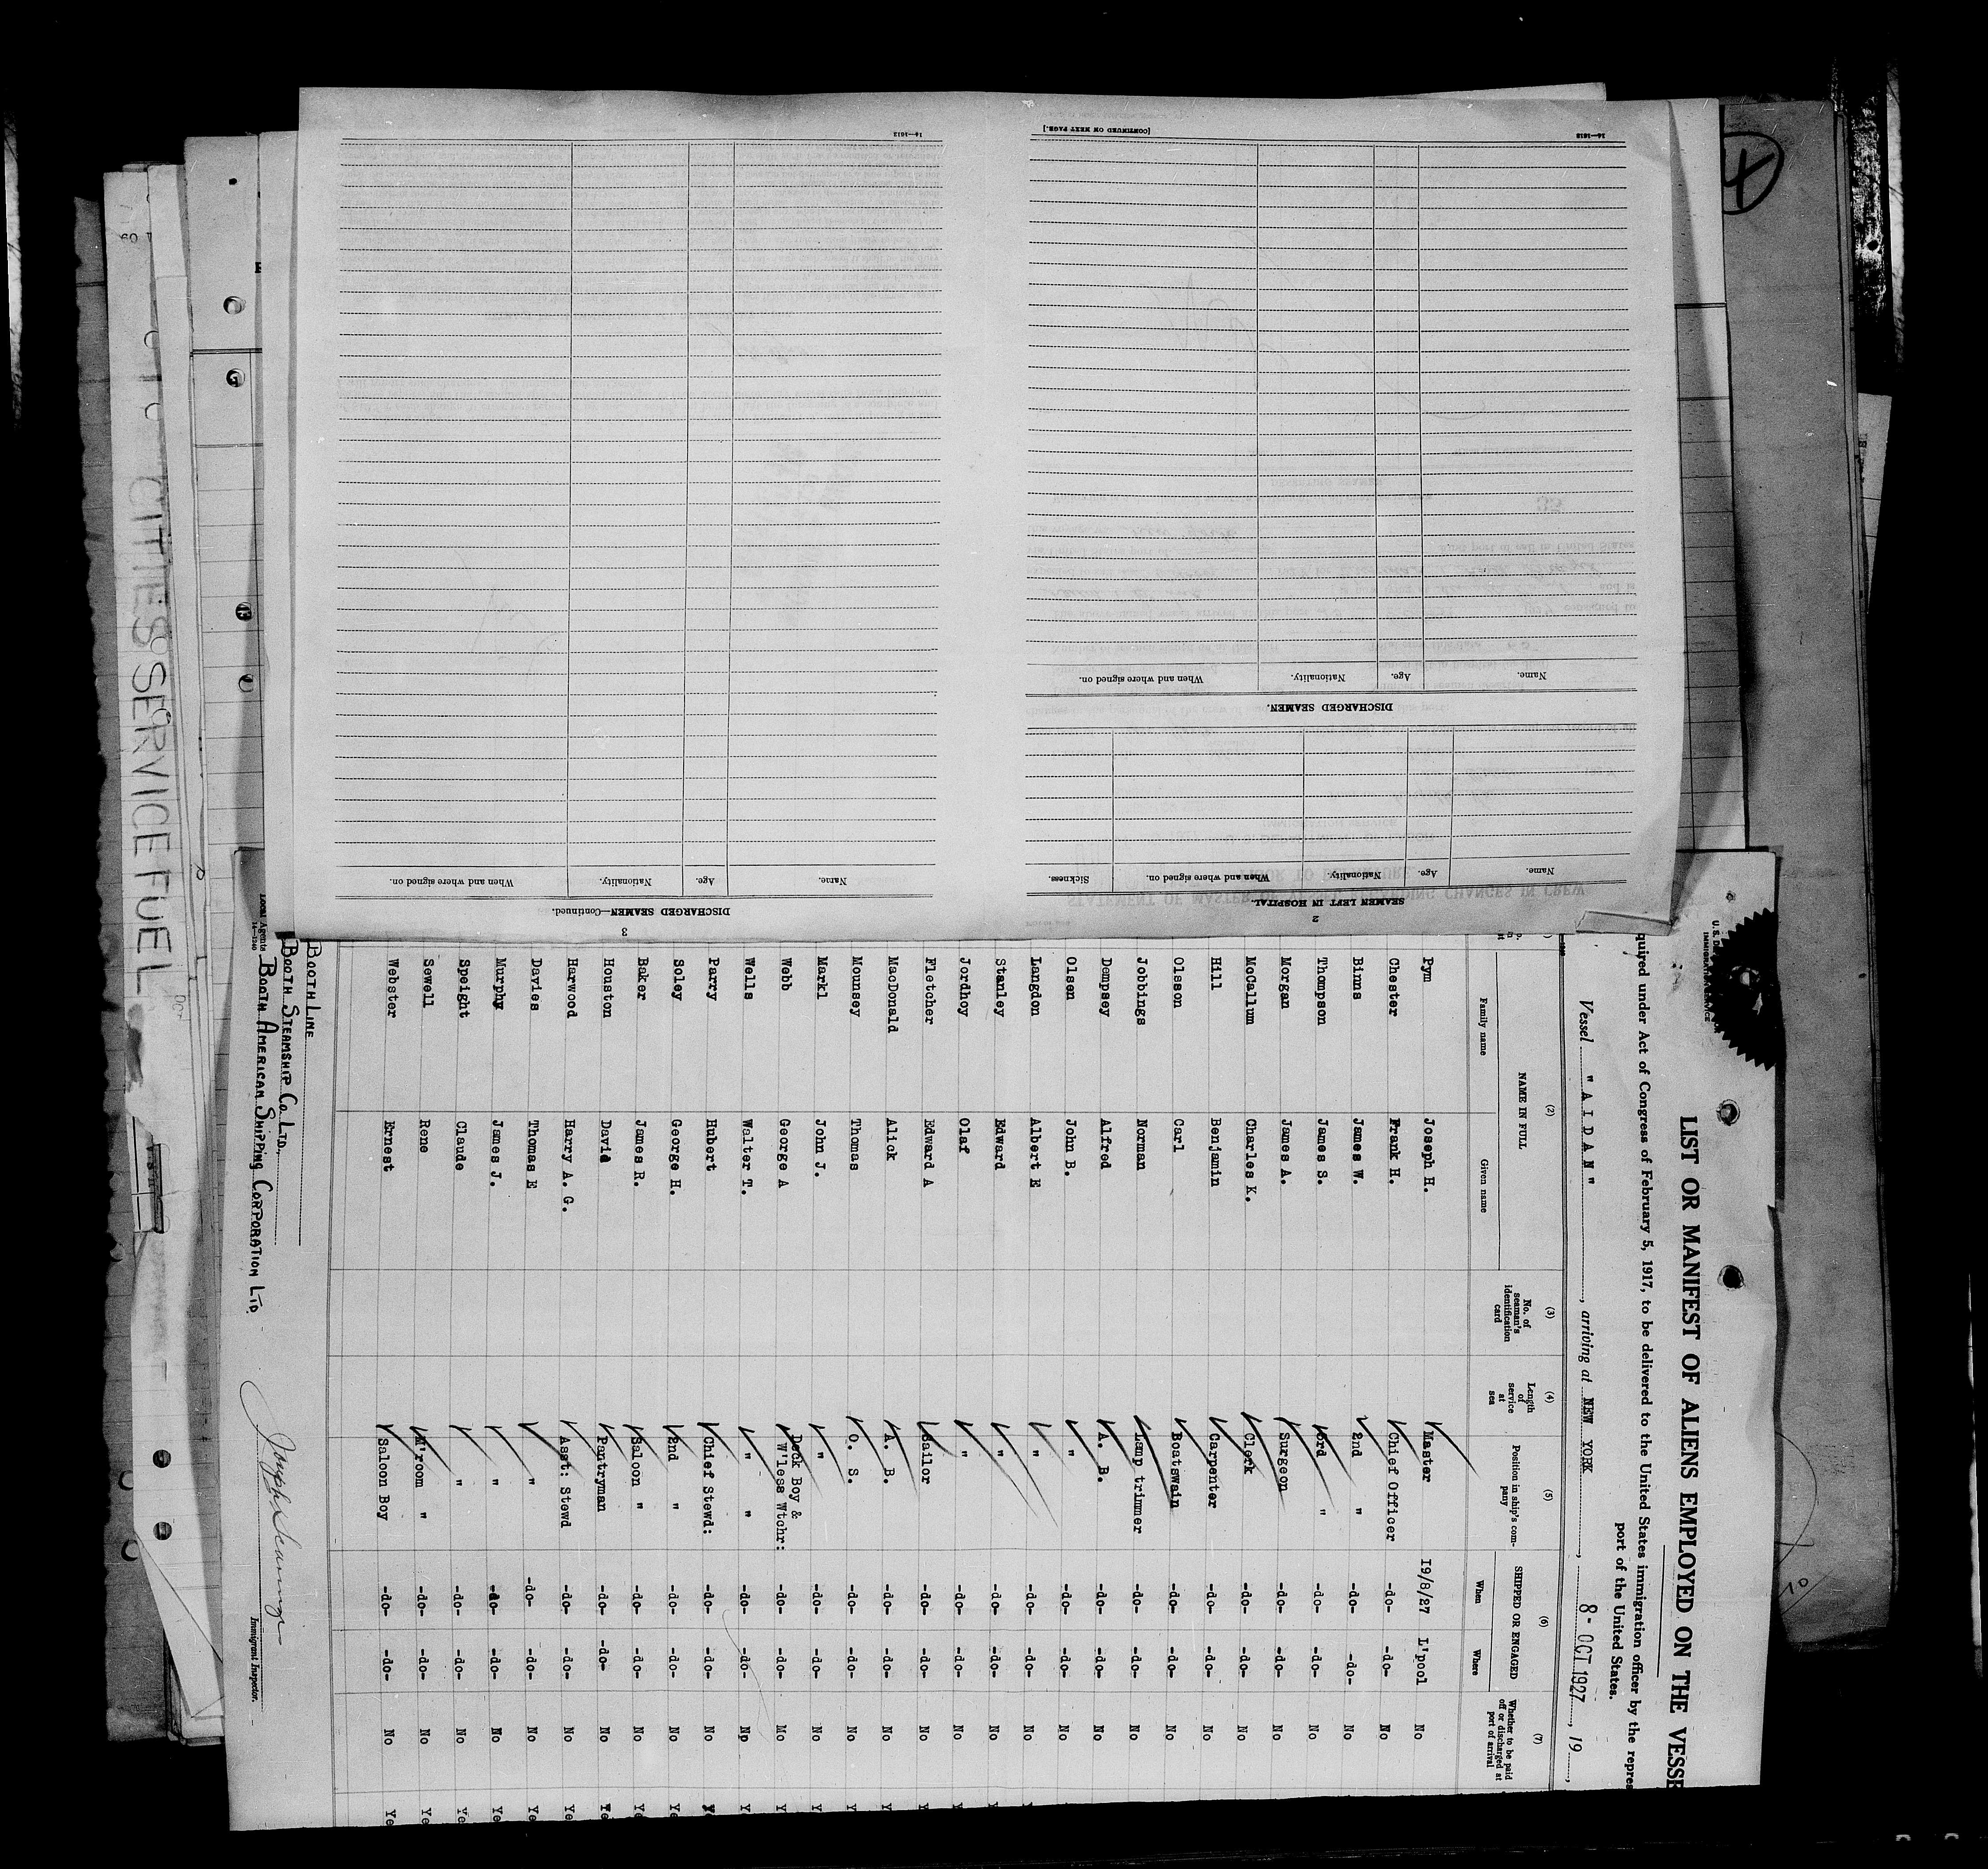 LIST OR MANIFEST OF ALIENS EMPLOYED ON THE VESSE
quired under Act of Congress of February 5, 1917, to be delivered to the United States immigration officer by the repres
port of the United States.
Vessel " A I D A N " , arriving at NEW YORK , 8- OCT 1927 , 19 ,
(2) (3) (4) (5) (6) (7)
NAME IN FULL
Family name Given name
No. of seaman's identification card
Length of service at sea
Position in ship's company
SHIPPED OR ENGAGED
When Where
Whether to be paid off or discharged at port of arrival
Pym Joseph H. Master 19/8/27 L'pool No
Chester Frank H. Chief Officer -do- -do- No
Binns James W. 2nd " -do- -do- No
Thompson James S. 3rd " -do- -do- No
Morgan James A. Surgeon -do- -do- No
McCallum Charles K. Clerk -do- -do- No
Hill Benjamin Carpenter -do- -do- No
Olsson Carl Boatswain -do- -do- No
Jobbings Norman Lamp trimmer -do- -do- No
Dempsey Alfred A. B. -do- -do- No
Olsen John B. " -do- -do- No
Langdon Albert E " -do- -do- No
Stanley Edward " -do- -do- No
Jordhoy Olaf " -do- -do- No
Fletcher Edward A Sailor -do- -do- No
MacDonald Alick A. B. -do- -do- No Ye
Mounsey Thomas O. S. -do- -do- No Ye
Markl John J. " -do- -do- No Ye
Webb George A Deck Boy & W'less Wtchr: -do- -do- Mo Ye
Wells Walter T. " " -do- -do- No Ye
Parry Hubert Chief Stewd: -do- -do- No Ye
Soley George H. 2nd " -do- -do- No Ye
Baker James R. Saloon " -do- -do- No Ye
Houston David Pantryman -do- -do- No Ye
Harwood Harry A. G. Asst: Stewd -do- -do- No Ye
Davies Thomas E " -do- -do- No Ye
Murphy James J. " -do- -do- No Ye
Speight Claude " -do- -do- No Ye
Sewell Rene M'room " -do- -do- No Ye
Webster Ernest Saloon Boy -do- -do- No Ye
BOOTH LINE
BOOTH STEAMSHIP CO. LTD.,
Local Agents BOOTH AMERICAN SHIPPING CORPORATION LTD.
14—1240
Immigrant Inspector.
2
SEAMEN LEFT IN HOSPITAL.
Name. Age. Nationality. When and where signed on. Sickness.
DISCHARGED SEAMEN.
Name. Age. Nationality. When and where signed on.
[CONTINUED ON NEXT PAGE.]
14—1612
3
DISCHARGED SEAMEN—Continued.
Name. Age. Nationality. When and where signed on.
14—1612
CITIES SERVICE FUEL
4
5